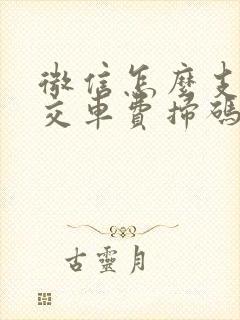 微信怎麼支
交車費掃碼
古靈月